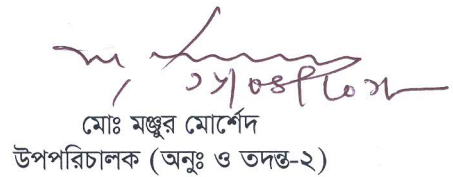 মোঃ মঞ্জুর মোর্শেদ
উপপরিচালক (অনুঃ ও তদন্ত-২)